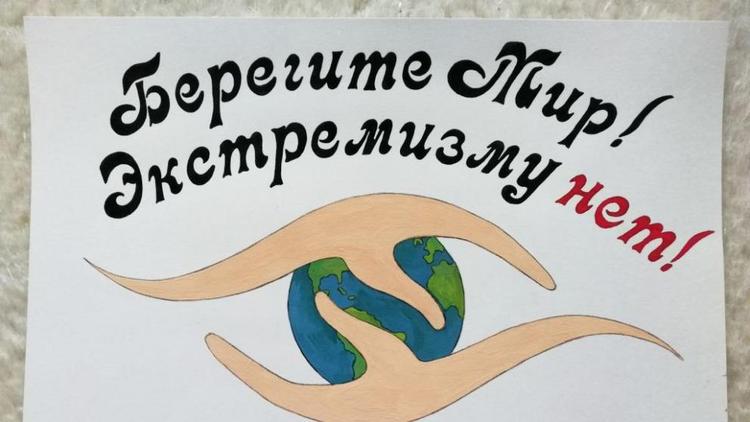 Берегите Мир!
Экстремизму нет!